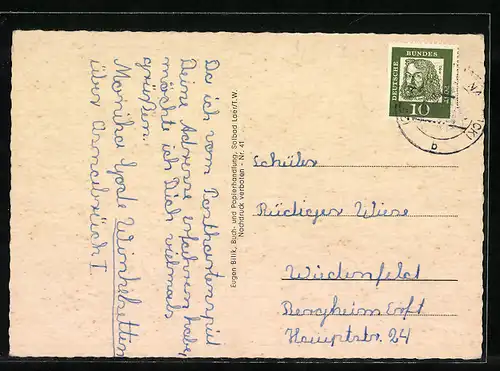 Da ich vom Postkartenspiel
Deine Adresse erfahren habe,
möchte ich Dich vielmals
grüßen.
Monika Winkelsetten
über Osnabrück I
Eugen Bilik, Buch- und Papierhandlung, Solbad Laer/T.W.
Nachdruck verboten - Nr. 41
DEUTSCHE BUNDES
10
b
Schüler
Rüdiger Wiese
Wiedenfeld
Bergheim Erft
Hauptstr. 24